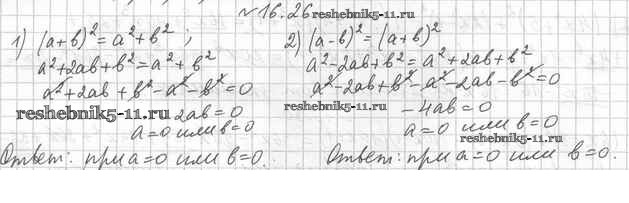 №16.26
reshebnik5-11.ru
1) (a+b)²=a²+b² ;
a²+2ab+b²=a²+b²
a²+2ab+b²-a²-b²=0
reshebnik5-11.ru
2ab=0
a=0 или b=0
Ответ: при a=0 или b=0.
2) (a-b)²=(a+b)²
a²-2ab+b²=a²+2ab+b²
a²-2ab+b²-a²-2ab-b²=0
reshebnik5-11.ru
-4ab=0
a=0 или b=0
reshebnik5-11.ru
Ответ: при a=0 или b=0.